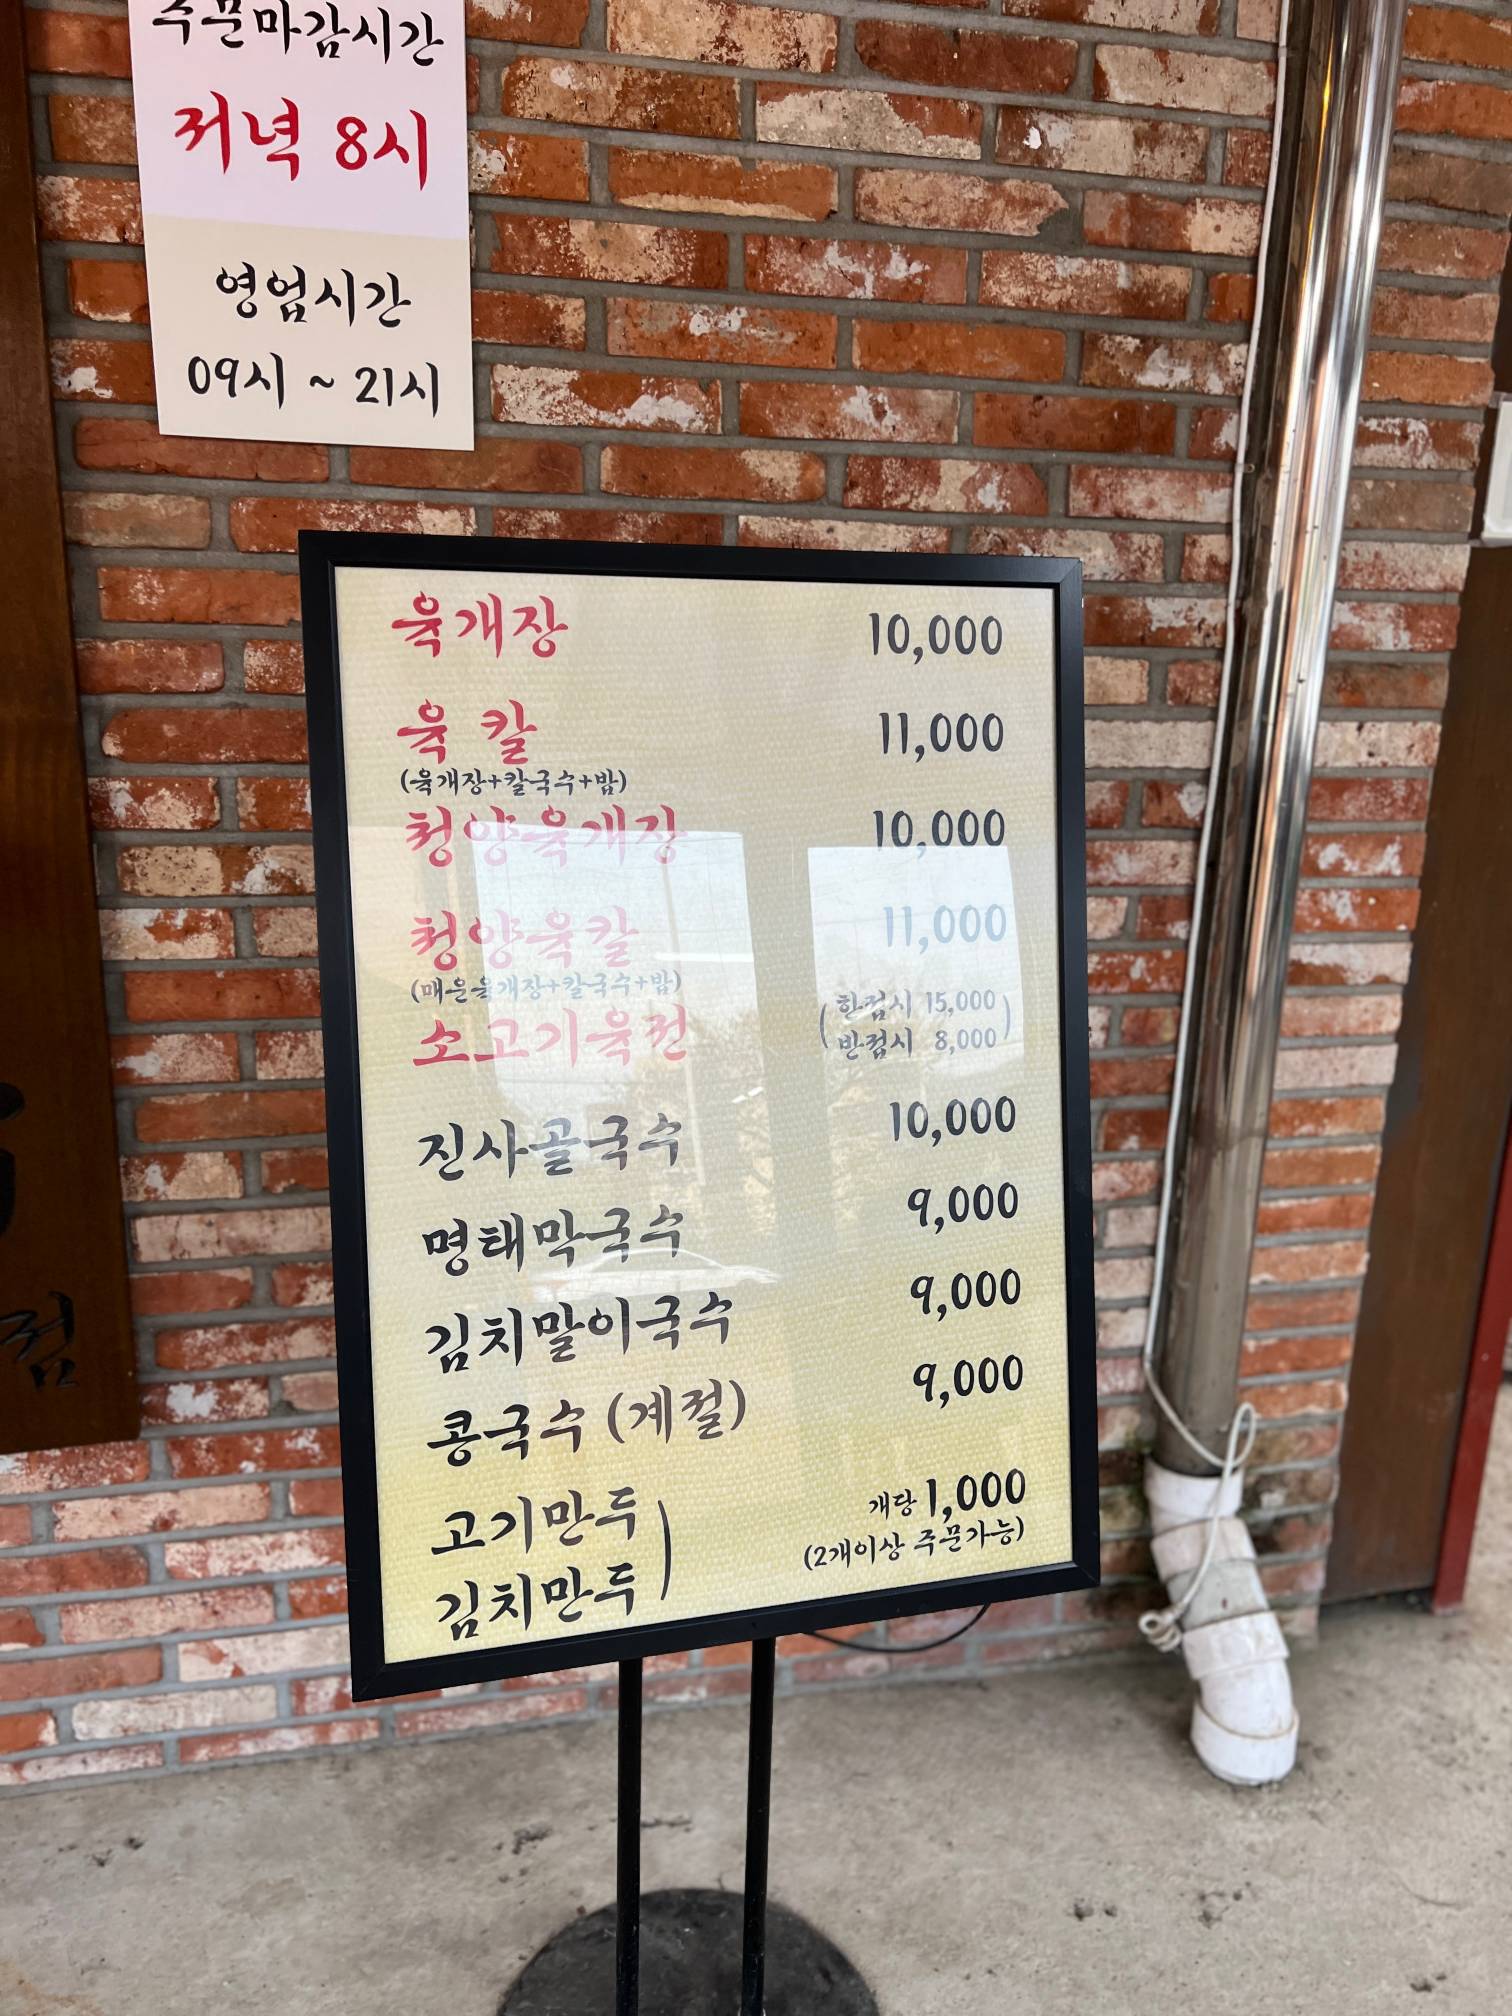 주문마감시간
저녁 8시
영업시간
09시 ~ 21시
육개장 10,000
육 칼 11,000
(육개장+칼국수+밥)
청양육개장 10,000
청양육칼 11,000
(매운육개장+칼국수+밥)
소고기육전 (한접시 15,000
반접시 8,000)
진사골국수 10,000
명태막국수 9,000
김치말이국수 9,000
콩국수 (계절) 9,000
고기만두
김치만두) 개당 1,000
(2개이상 주문가능)
점